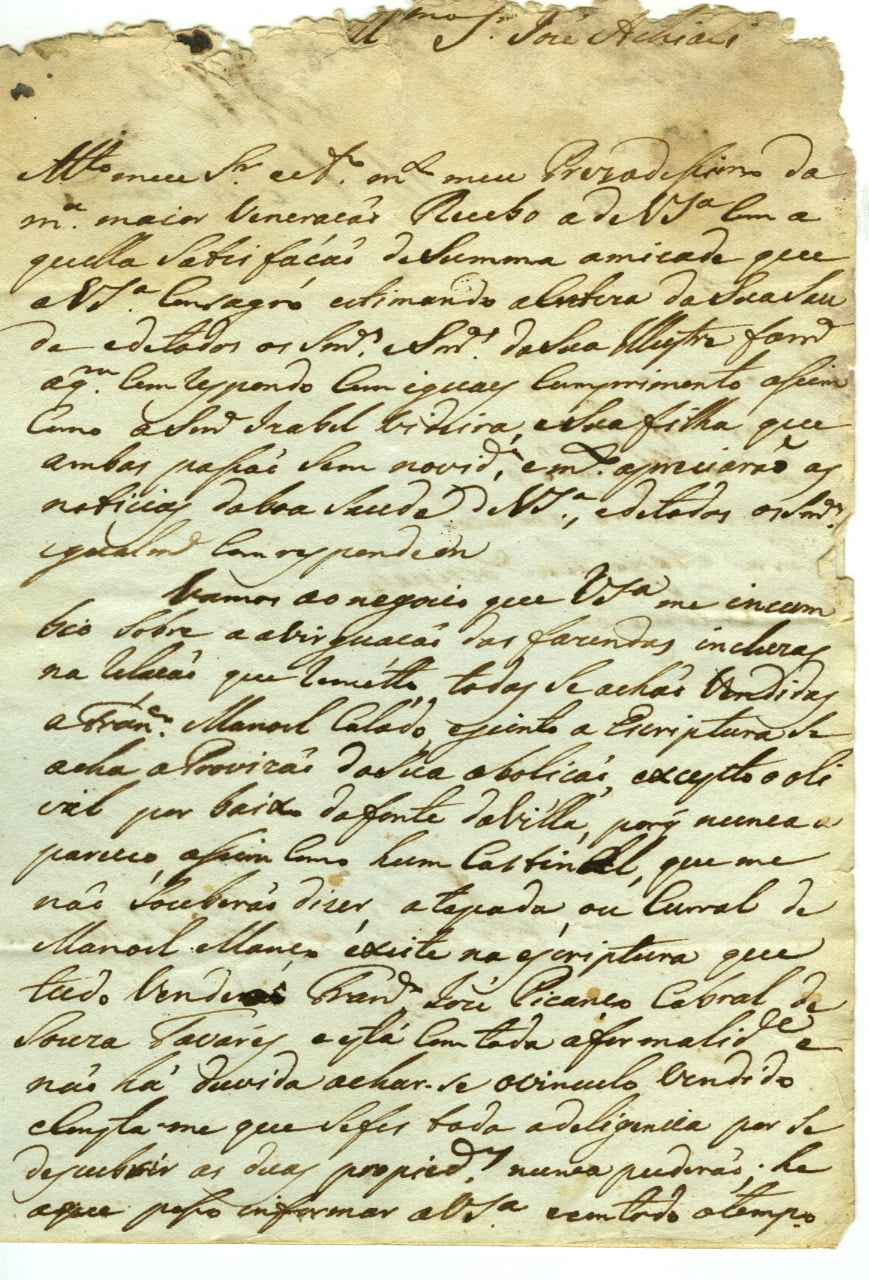 Illmo Sr. José Achiali
Mto meu Sr. e Ar. mto meu Prezadissimo da
ma. maior Veneracão Recebo a de VSa Com a
quella satisfácão de Summa amizade que
a VSa. Consagró estimando a inteira da Sua Sau
de e de todos os Snrs. e Snras. da Sua Illustre famª
a qm. Com respondo Com iguaes Cumprimento assim
Como a Snrª Izabel Videira, e Sua filha que
ambas passão sem novide, e mto. apreciarão as
noticias da boa Saude de VSa., e de todos os Snrs.
igualme Com respondem
Vamos ao negocio que VSa me incum
bio sobre a avirguacão das fazendas incluzas
na relacão que remétto, todas se achão Vendidas
a Fráncº. Manoel Calado, e junto a Escriptura se
acha a Provizão da Sua abolicão, excepto o oli
vál por baixo da fonte da Villa, porq̃ nunca a
pareceo, assim Como hum Castinal, que me
não Souberão dizer, a tapada ou Curral de
Manoel Manço éxiste na escriptura que
tudo Venderão Franco José Picanço Cabral de
Souza Tavarés e está Com toda a formalide e
não há duvida achar-se o vinculo Vendido
e Consta-me que se fes toda a deligencia por se
descubrir as duas propieds. nunca puderão; he
a que posso informar a VSa e em todo o tempo